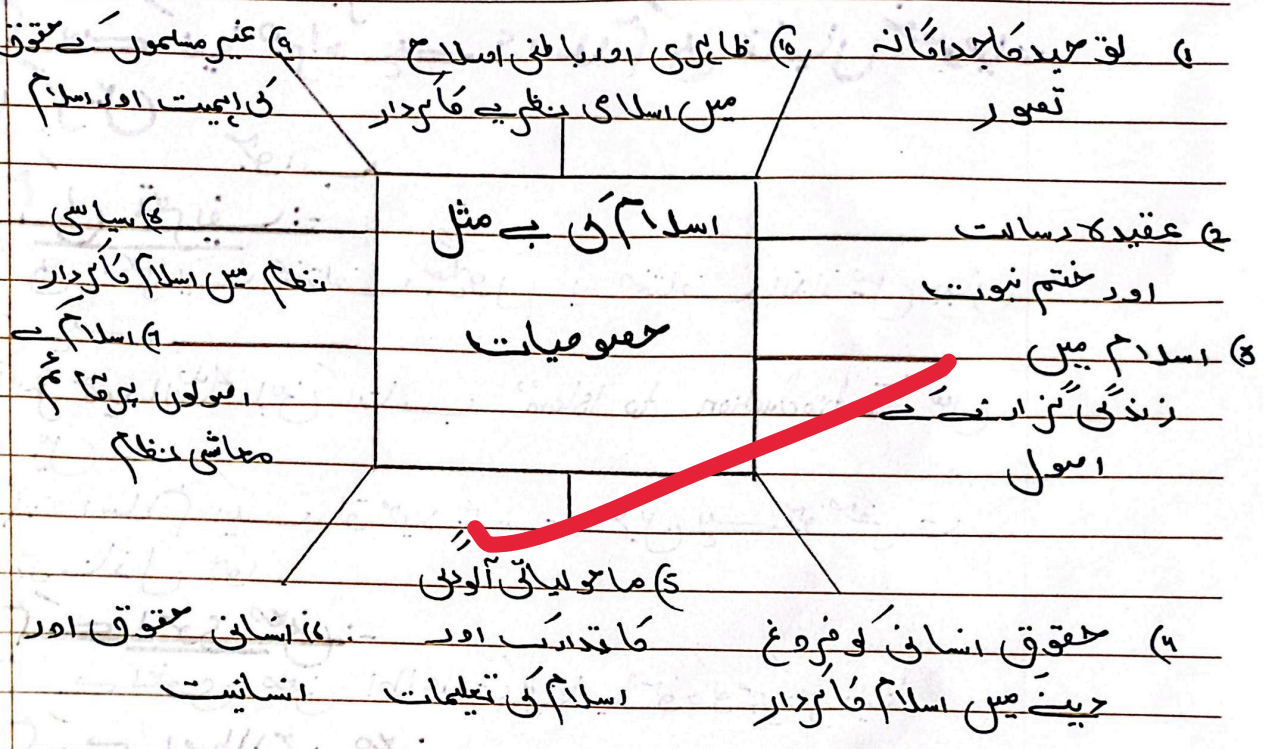 1) توحید کا جداگانہ
تصور
2) عقیدہ رسالت
اور ختم نبوت
3) اسلام میں
زندگی گزارنے کے
اصول
4) حقوق انسانی کو فروغ
دینے میں اسلام کا کردار
5) ماحولیاتی آلودگی
کا تدارک اور
اسلام کی تعلیمات
6) انسانی حقوق اور
انسانیت
7) اسلام کے
اصولوں پر قائم
معاشی نظام
8) سیاسی
نظام میں اسلام کا کردار
9) غیر مسلموں کے حقوق
کی اہمیت اور اسلام
10) ظاہری اور باطنی اصلاح
میں اسلامی نظریے کا کردار
اسلام کی بے مثل
خصوصیات